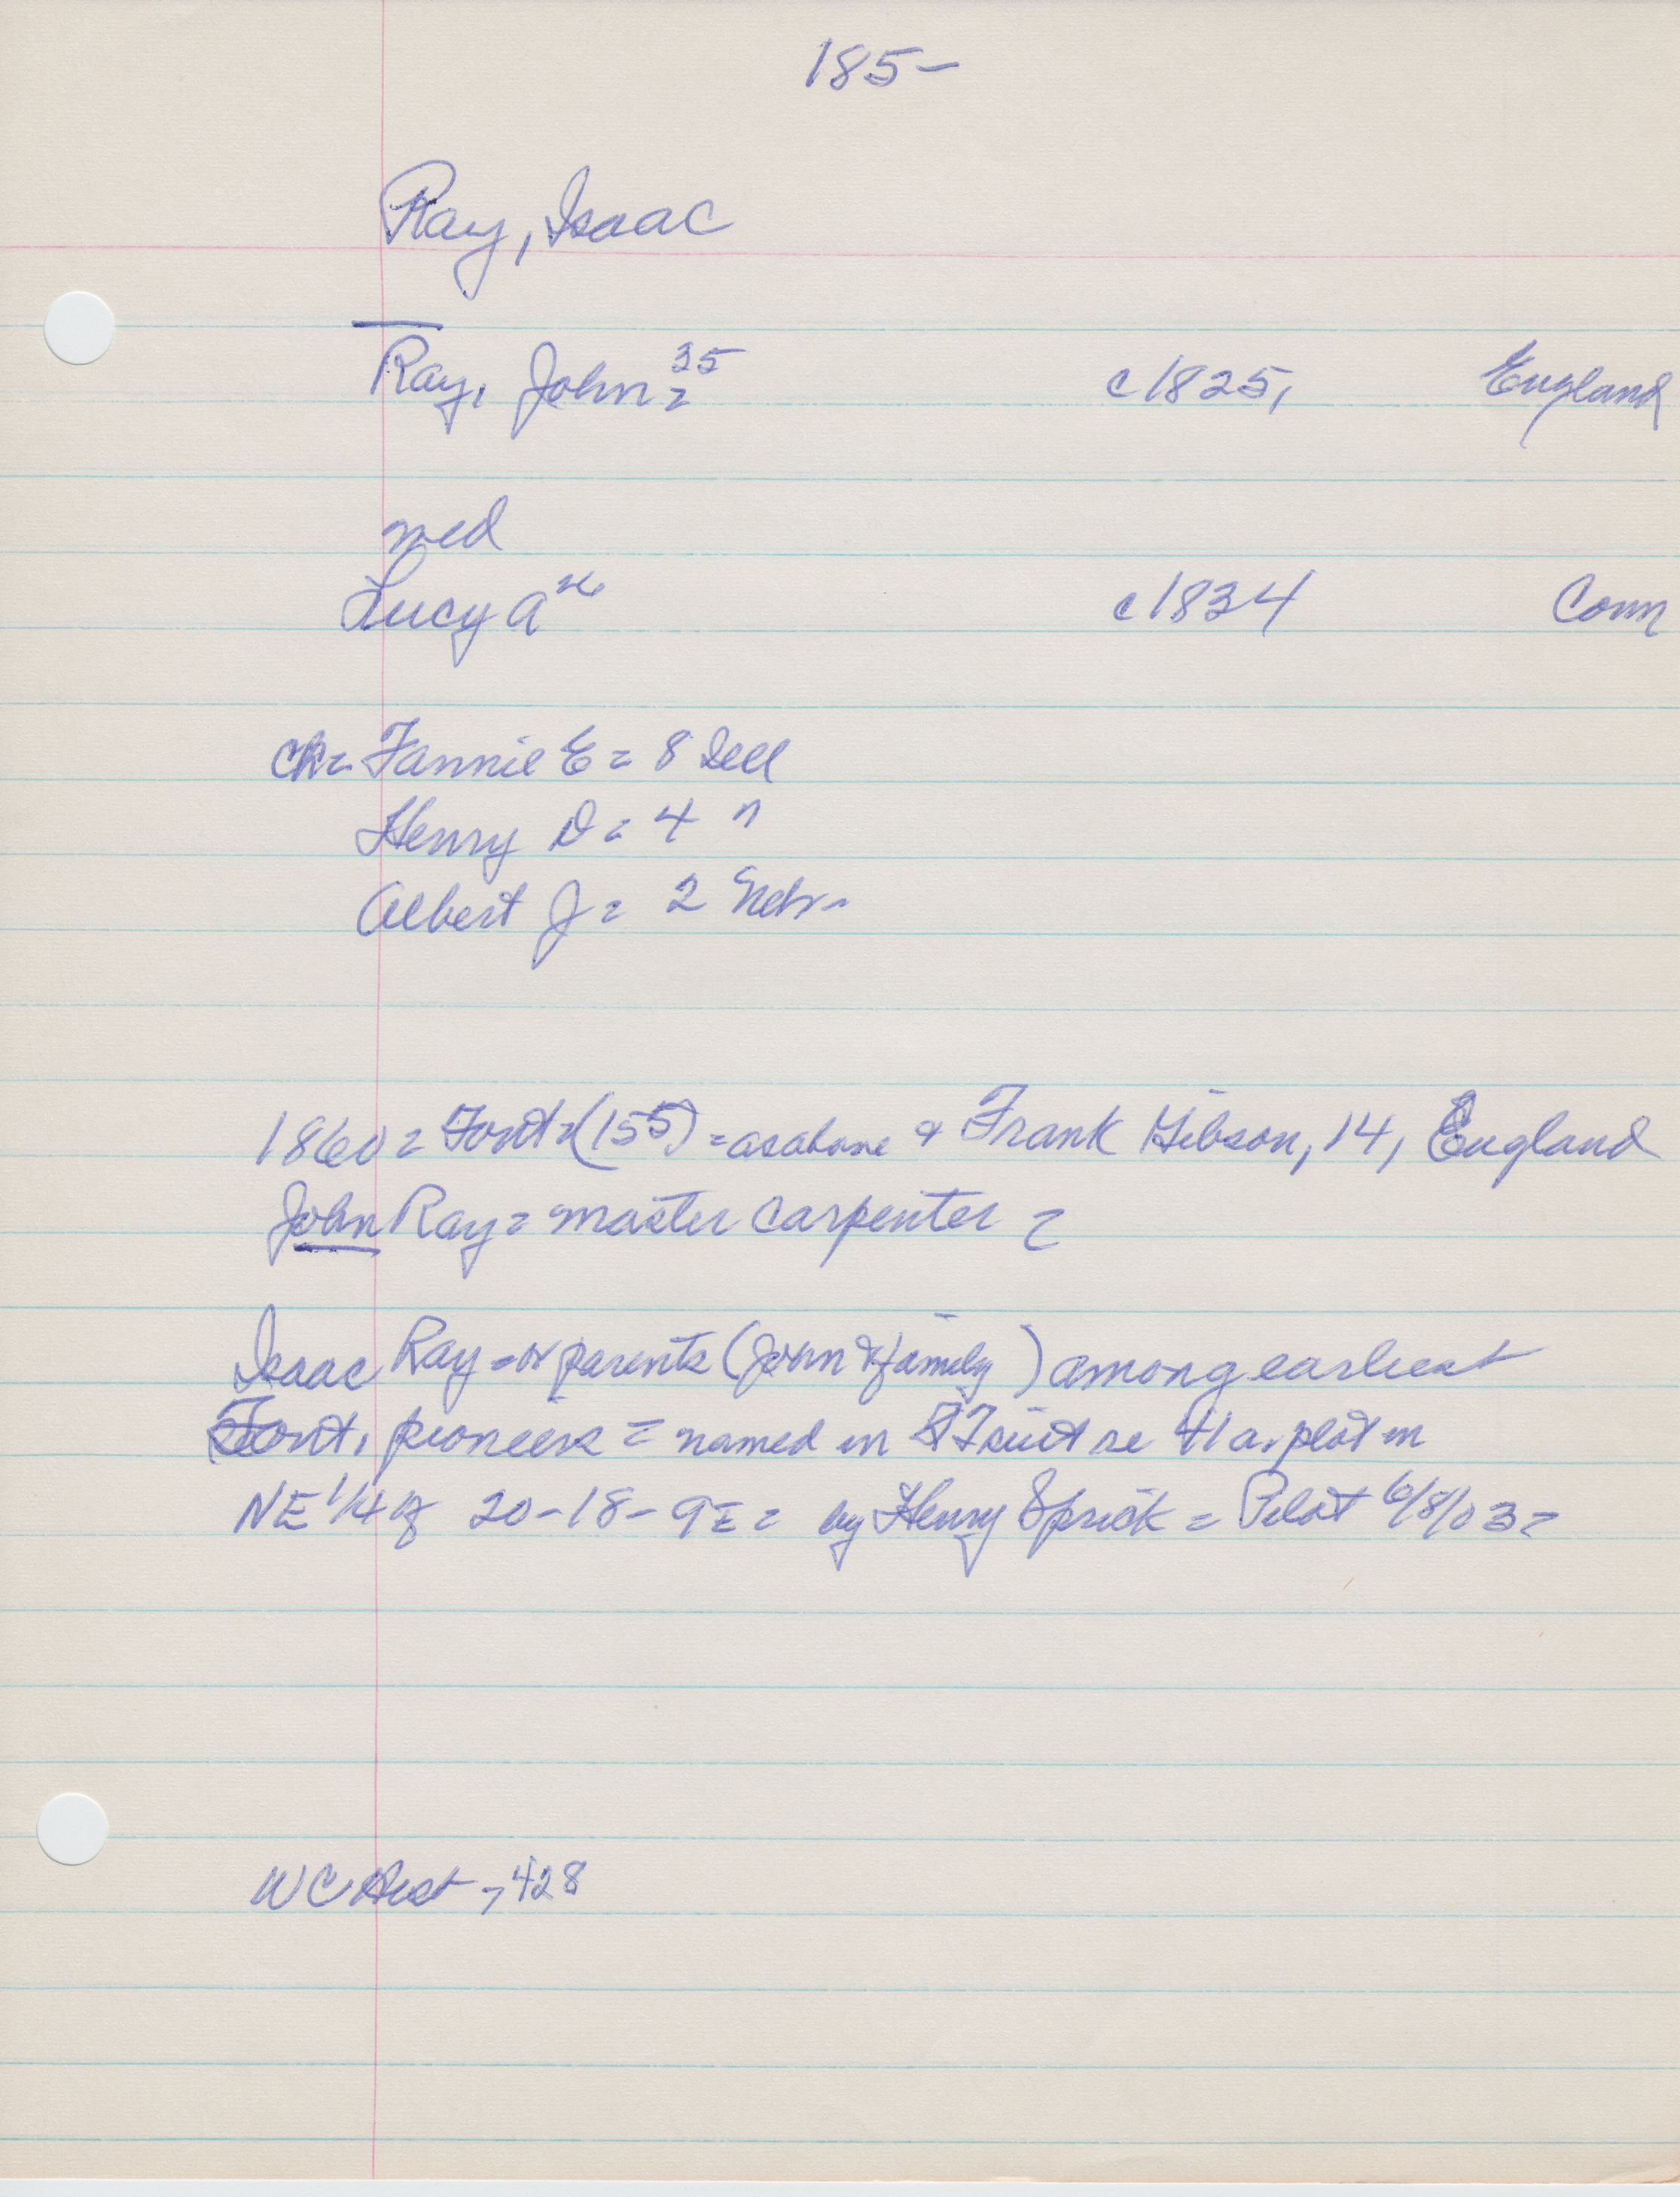 185-
Ray, Isaac
Ray, John = 35 c1825, England
med
Lucy A 26 c1834 Conn
ch = Fannie E = 8 Ill
Henry D = 4 "
Albert J = 2 Nebr-
1860 = Font = (155) = as above & Frank Gibson, 14, England
John Ray = master carpenter =
Isaac Ray = or parents (John & family) among earliest
Font. pioneers = named in suit re 41 a. plot in
NE 1/4 of 20-18-9E = by Henry Sprick = Pilot 6/8/03 =
WC Hist -, 428